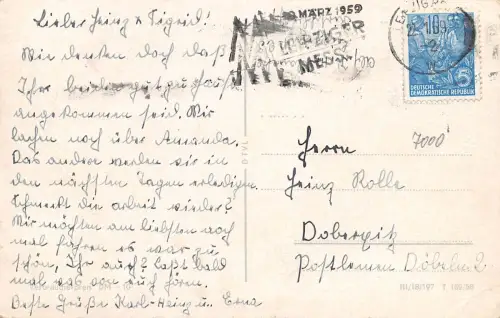 Lieber Heinz u Sigrid!
Wir denken doch daß
Ihr beide gut zuhause
angekommen seid. Wir
lachen noch über Amanda.
Das andere werden wir in
den nächsten Tagen erledigen.
Schmeckt die arbeit wieder?
Wir möchten am liebsten noch
mal fahren es war zu
schön, Ihr auch? Laßt bald
mal was von euch hören.
Beste Grüße Karl-Heinz u. Erna
MÄRZ 1959
LEIPZIGER
MESSE
DEUTSCHE
DEMOKRATISCHE REPUBLIK
5
DTVL
Herrn
7000
Heinz Rolle
Doberpitz
Döbeln 2
III/18/197